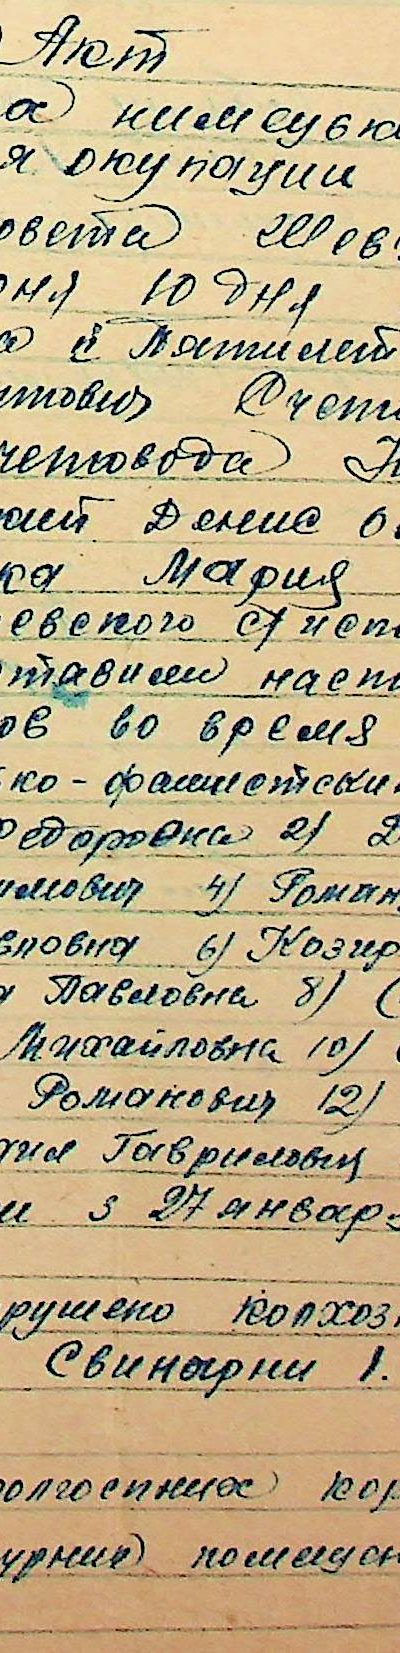 Акт
а нимецко
я окупации
овета Шев
юня 10 дня
а й Пятилет
итович Счет
четовода К
кий Денис О
ка Мария
евского с/испо
ставили наст
ов во время
ко-фашистски
Федоровна 2) Д
имович 4) Роман
вловна 6) Козир
а Павловна 8) С
Михайловна 10)
Романович 12)
аил Гаврилович
ии з 27 январ
рушено колхоз
Свинарни 1.
колгоспних кор
урних помещен